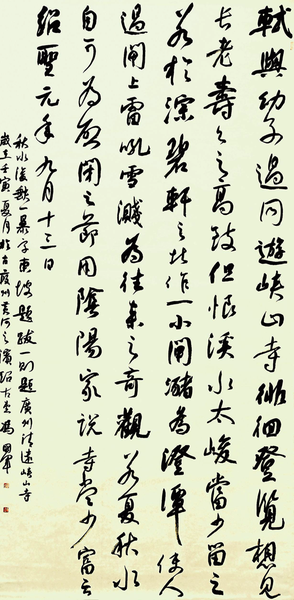 軾與幼子過同遊峽山寺徘徊登覽想見
長老壽公之高致但恨溪水太峻當少留之
若於淙碧軒之北作一小閘瀦為澄潭使人
過閘上雷吼雪濺為往來之奇觀若夏秋水
自可為啟閉之節用陰陽家說寺當少富云
紹聖元年九月十三日
秋水後缺一暴字東坡題跋一則題廣州清遠峽山寺
歲在壬寅夏月於古州黃河之濱紹古